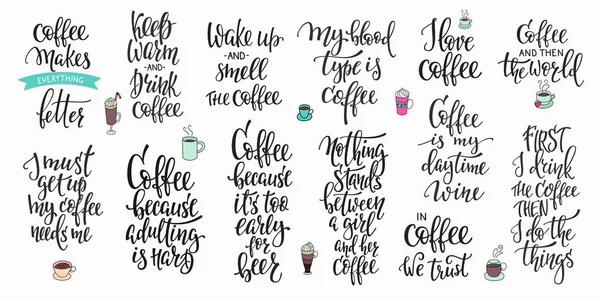 Coffee
makes
EVERYTHING
better
Keep
warm
-AND-
Drink
coffee
Wake up
-AND-
smell
THE COFFEE
My blood
type is
coffee
I love
coffee
Coffee
AND THEN
the World
I must
get up
my coffee
needs me
Coffee
because
adulting
is Hard
Coffee
because
it's too
early
for
beer
Nothing
stands
between
a girl
and her
coffee
Coffee
is my
daytime
wine
IN
coffee
We trust
FIRST
I drink
THE COFFEE
THEN
I do the
things